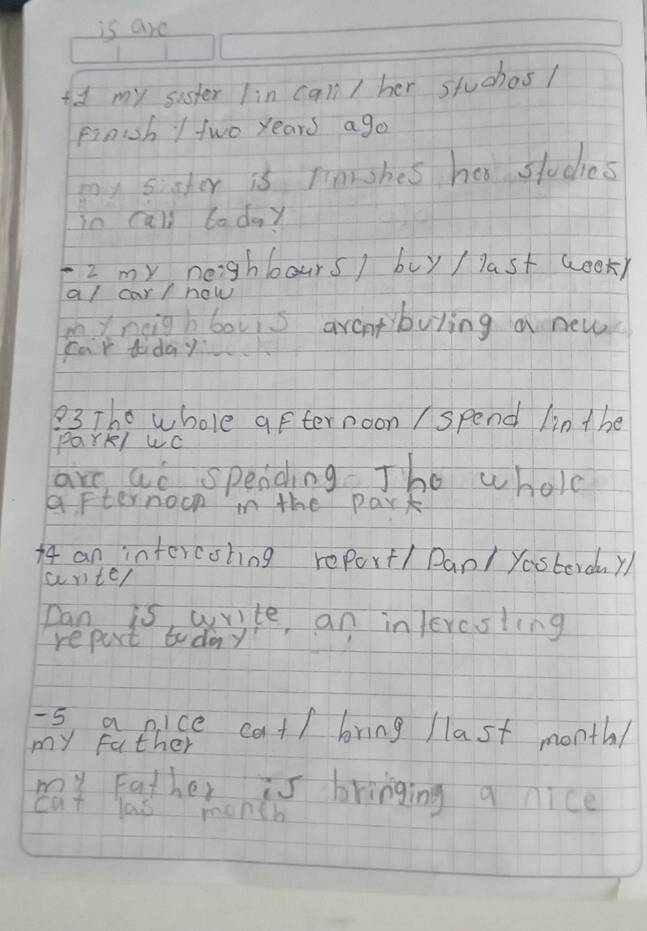 is are
+1 my sister / in cali / her studios /
Finish / two years ago
my sister is finishes her studies
in cali today
- 2 my neighbours / buy / last week /
a / car / new
my neighbours arent buying a new
car today
?3 The whole afternoon / spend / in the
park / we
are we spending The whole
afternoon in the park
+4 an interesting report / Dan / yesterday /
write /
Dan is write an interesting
report today
-5 a nice cat / bring / last month /
my Father
my Father is bringing a nice
cat las month